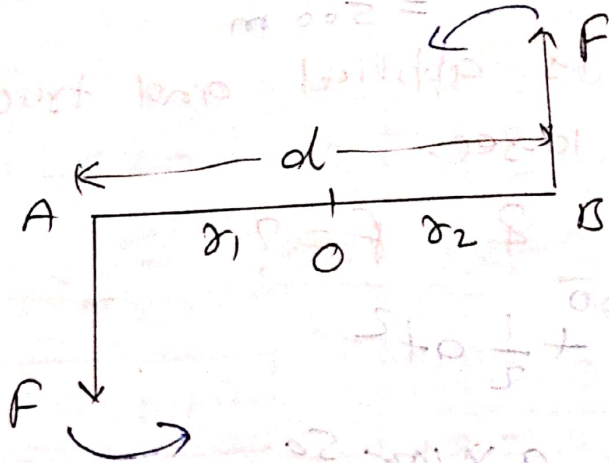 F
d
A r₁ O r₂ B
F